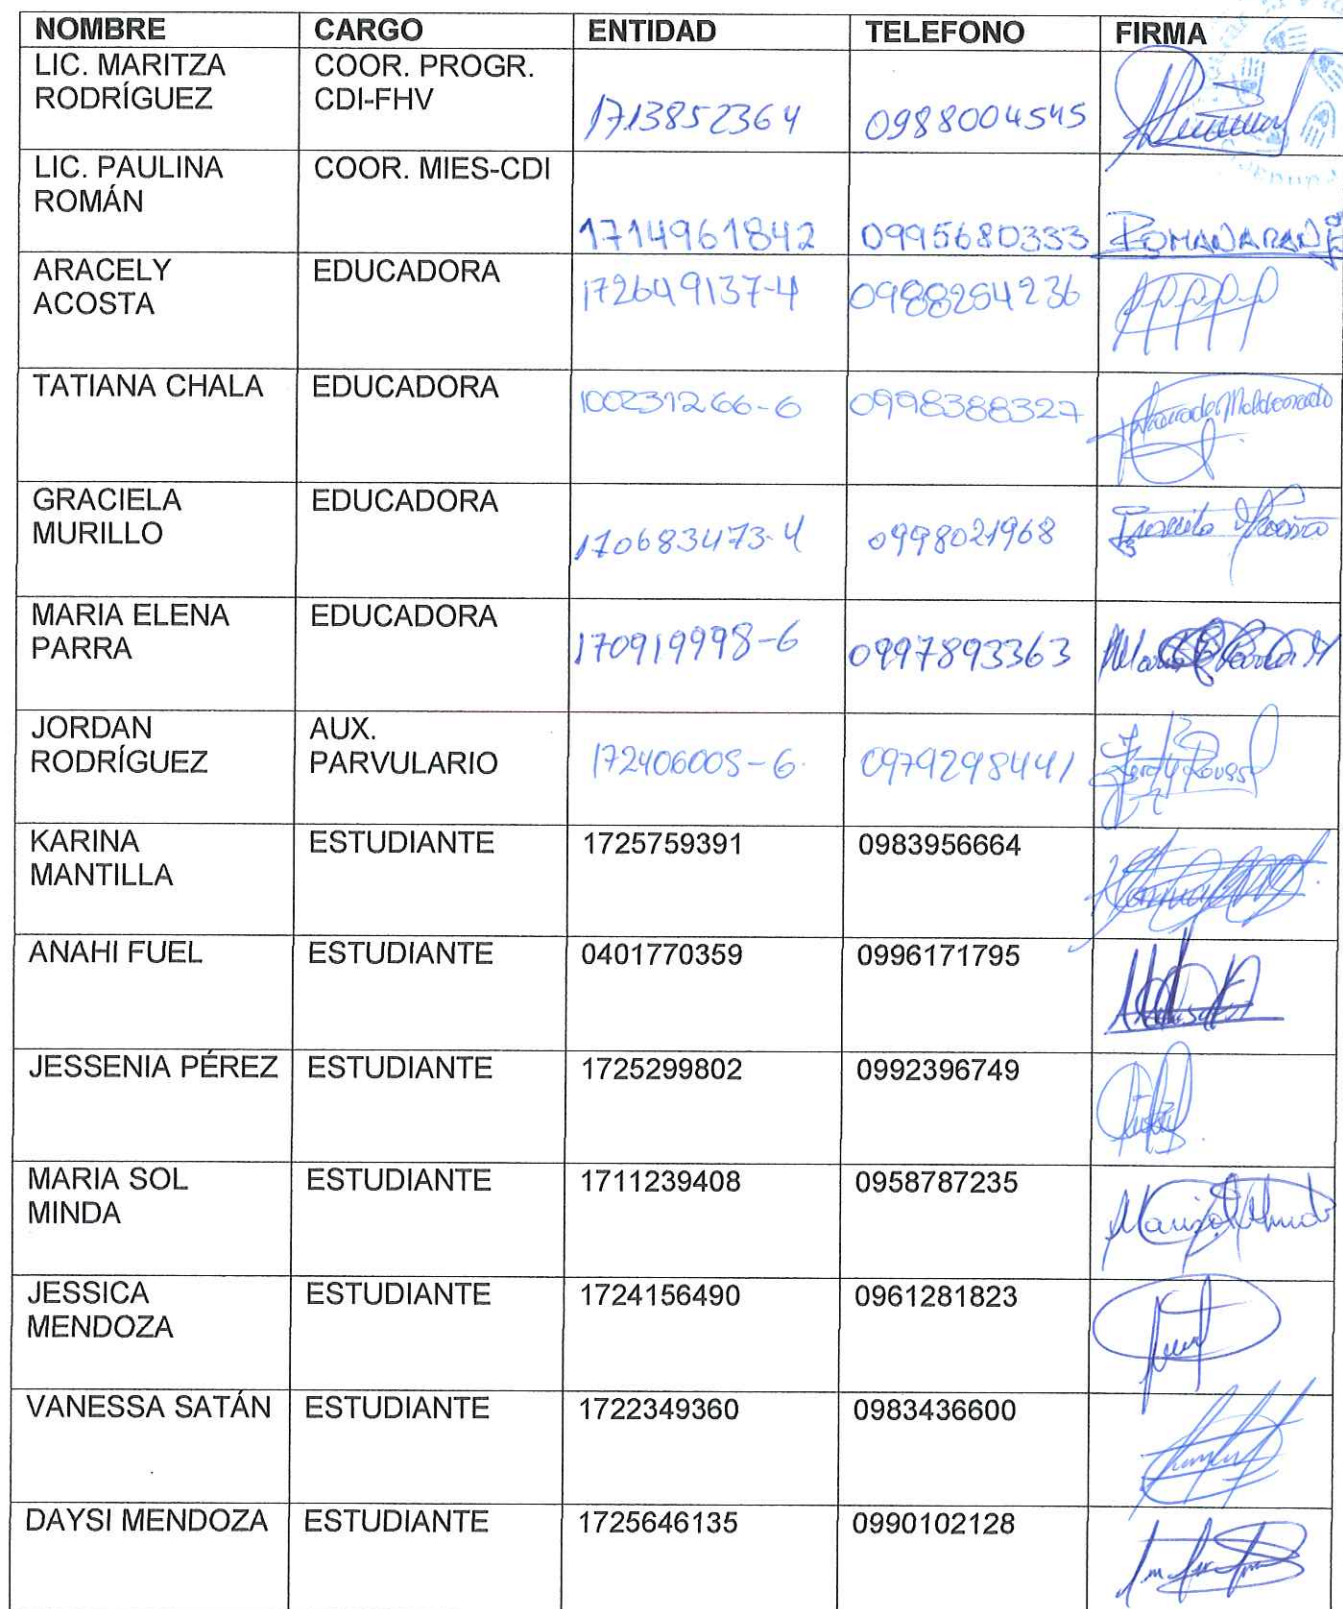 NOMBRE CARGO ENTIDAD TELEFONO FIRMA
LIC. MARITZA COOR. PROGR.
RODRÍGUEZ CDI-FHV 1713852364 0988004545
LIC. PAULINA COOR. MIES-CDI
ROMÁN
1714961842 0995680333
ARACELY EDUCADORA 172649137-4 0988254236
ACOSTA
TATIANA CHALA EDUCADORA 100231266-6 0998388327
GRACIELA EDUCADORA
MURILLO 170683473-4 0998021968
MARIA ELENA EDUCADORA
PARRA 170919998-6 0997893363
JORDAN AUX.
RODRÍGUEZ PARVULARIO 172406005-6 0979298441
KARINA ESTUDIANTE 1725759391 0983956664
MANTILLA
ANAHI FUEL ESTUDIANTE 0401770359 0996171795
JESSENIA PÉREZ ESTUDIANTE 1725299802 0992396749
MARIA SOL ESTUDIANTE 1711239408 0958787235
MINDA
JESSICA ESTUDIANTE 1724156490 0961281823
MENDOZA
VANESSA SATÁN ESTUDIANTE 1722349360 0983436600
DAYSI MENDOZA ESTUDIANTE 1725646135 0990102128